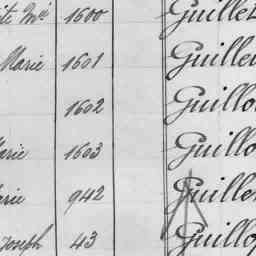 1600 Guille
Marie 1601 Guille
1602 Guillo
Marie 1603 Guillo
Marie 942 Guille
Joseph 43 Guillo